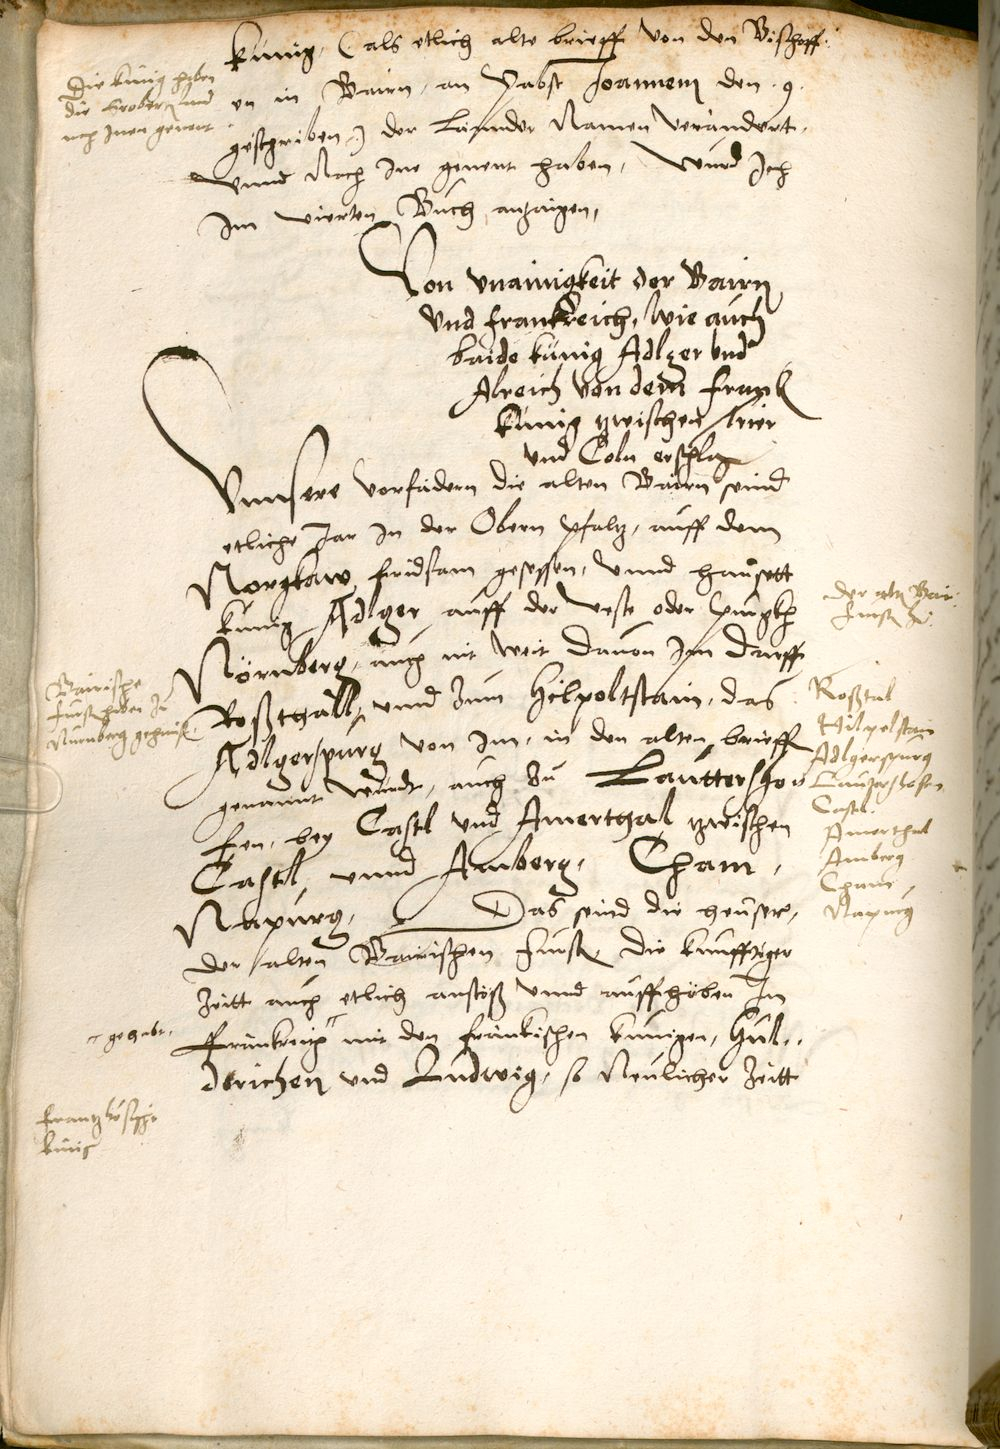 künig, (als etlich alte brieff von den Bischoff
en in Bairn, an Pabst Joannem den .9.
geschriben,) der Lännder Namen verändert,
vnnd Nach Ine genent haben, Würd Ich
Im vierten Buch anzaigen,
Die künig haben
die Erobert land
nach Inen genent
Von vnainigkeit der Bairn
Vnd frankreich, Wie auch
baide künig Adlger und
Alreich von dem Frank
künig zwischen Trier
und Coln erschlag
Vnnsere vorfädern die alten Bairn seind
etliche Jar In der Obern Pfaltz, auff dem
Norgkaw fridsam gesessen, Vnnd hausett
künig Adlger auff der Veste oder Purgkh
Nörnberg, auch nit weit dauon Im Darff
Roßthall, vnnd zum Hilpoltstain, das
Adlgerspurg von Im, in den alten brieff
genannt würdt, auch zu Lauttersho
fen, bey Castl vnd Amerthal zwischen
Castl, vnnd Amberg, Cham,
Napurg, Das seind die heuser,
der alten Bairischen Fürst, die kunfftiger
Zeitt auch etlich anstöß vnnd auffhöben In
Frankreich mit den fränkischen künigen, Hül..
derichen vnd Ludwig, so Neulicher Zeitt
Bairische
fürst haben zu
Nürnberg gehaust
gehabt,
Frantzösische
künig
der alten Bair
Fürst
Roßtal
Hilpelstain
Adlgerspurg
Lautershofen
Castl.
Amerthal
Amberg
Cham,
Napurg